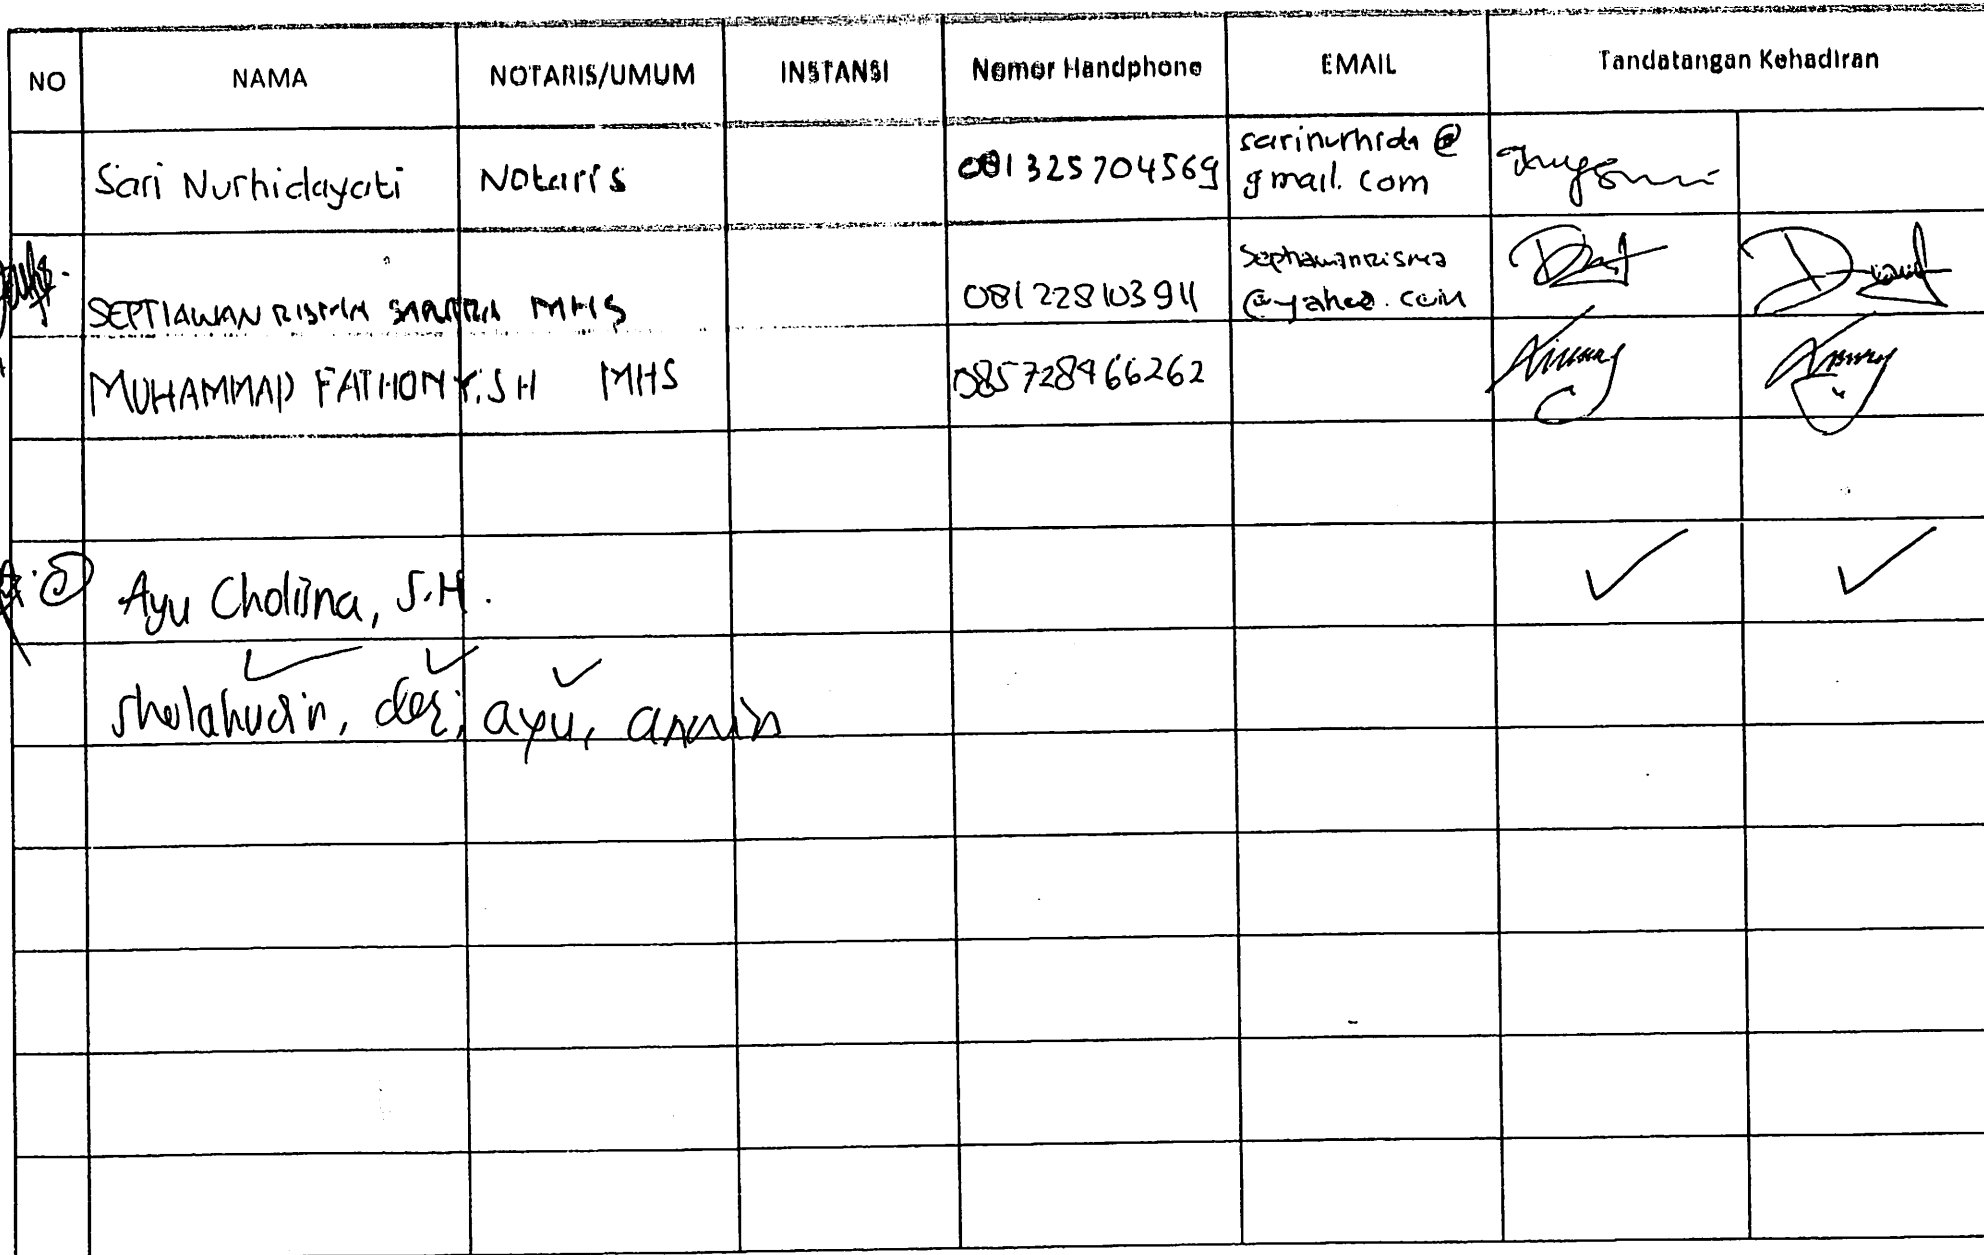 NO NAMA NOTARIS/UMUM INSTANSI Nomor Handphone EMAIL Tandatangan Kehadiran
Sari Nurhidayati Notaris 081325704569 sarinurhida@
gmail.com
SEPTIAWAN RISMA MHS 081228103911 septiawanrisma
@yahoo.com
MUHAMMAD FATHONY.SH MHS 085728466262
Ayu Choliina, S.H.
sholahudin, ayu,